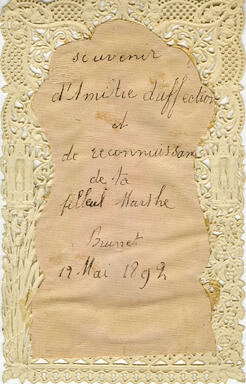 souvenir
d'Amitie d'affection
et
de reconnaissan
de ta
filleul Marthe
Brunet
12 Mai 1892